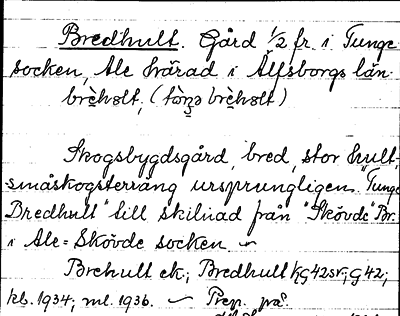 Bredhult. Gård 1/2 fr. i Tunge
socken, Ale härad i Älfsborgs län.
brèhʊlt,
Skogsbygdsgård, bred, stor hult,
småskogsterräng ursprungligen. "Tunge
Bredhult" till skilnad från "Skövde" Br.
i Ale=Skövde socken.
Brehult ek; Bredhult kg 42 sr; g 42;
kb. 1934; ml. 1936. — Prep. på.